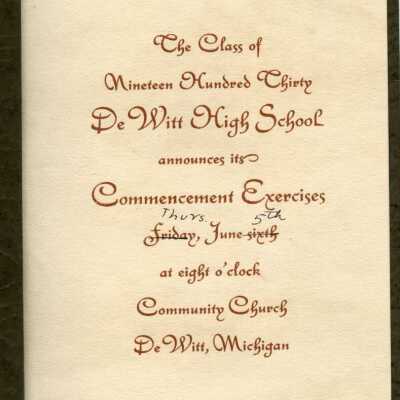 The Class of
Nineteen Hundred Thirty
De Witt High School
announces its
Commencement Exercises
Thurs. 5th
Friday, June sixth
at eight o'clock
Community Church
De Witt, Michigan